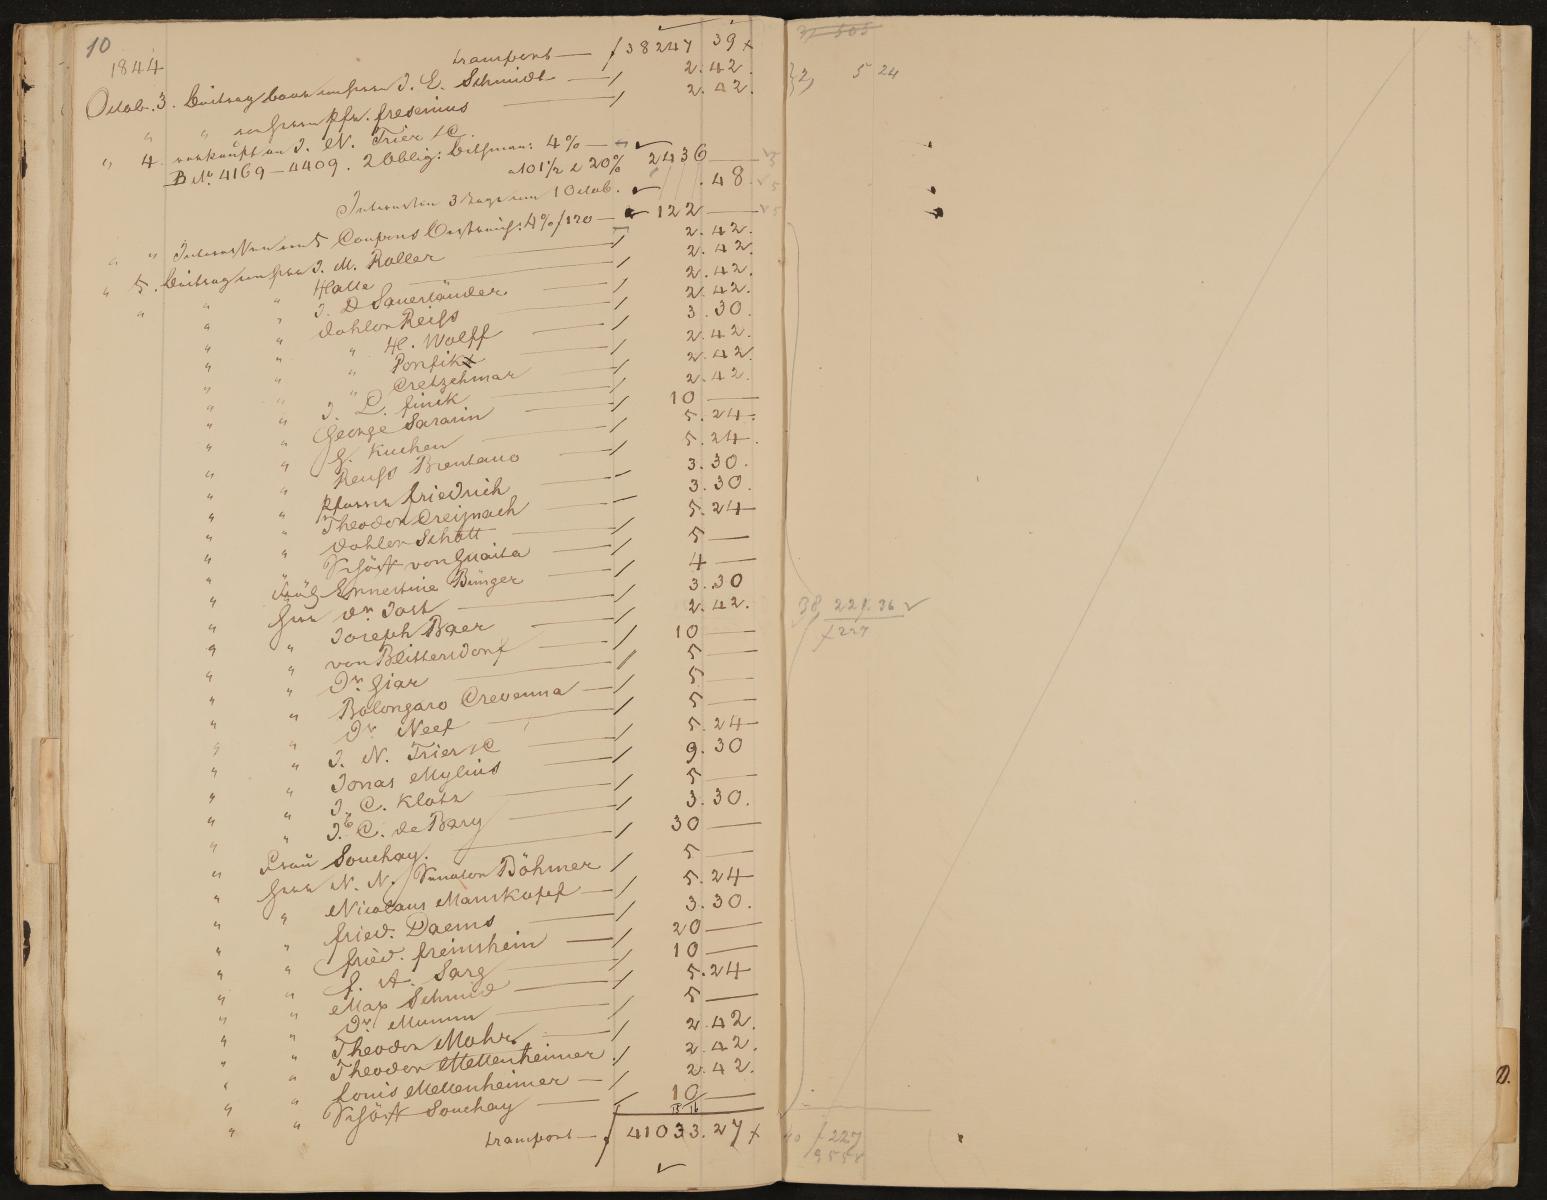 10
1844 transport — f 38247 39 x
Octob. 3. Beitrag baar von Herrn J. E. Schmidt — 2.42
" " von Herrn Pfr. Fresenius — 2.42.
" 4. verkauft an J. N. Trier &C.
B No. 4169–4409. 2 Oblig: Bethman: 4% —
a 101 1/2 & 20% 2436 —
Interessen 3 Tage vom 1 Octob. .48.
" " Interessen von 5 Coupons Oestreich: 4% f 120 — 122 —
" 5. Beitrag von Herrn J. M. Roller — 2.42.
" " " Halle — 2.42.
" " J. D Sauerländer — 2.42.
" " doktor Reiss — 2.42.
" " " H. Wolff — 3.30.
" " " Ponfick — 2.42.
" " " Cretzschmar — 2.42
" " J. L. Finck — 2.42.
" " George Sararin — 10 —
" " G. Kuchen — 5.24.
" " Reuss Brentano — 5.24.
" " Pfarrer Friedrich — 3.30.
" " Theodor Creiznach — 3.30.
" " doktor Schott — 5.24
" " Schöff von Guaita — 5 —
" Fräul. Ernestine Bünger — 4 —
" Herr dr. Jost — 3.30
" " Joseph Baer — 2.42.
" " von Blittersdorf — 10 —
" " Dr. Giar — 5 —
" " Bolongaro Crevenna — 5 —
" " Dr. Neef — 5 —
" " J. N. Trier &C — 5.24
" " Jonas Mylius — 9.30
" " J. C. Klotz — 5 —
" " J. C. de Bary — 3.30.
" Frau Souchay. — 30 —
" Herr N. N. / Senator Böhmer 5 —
" " Nicolaus Manskopf — 5.24
" " Fried. Daems — 3.30.
" " Fried. Freinsheim — 20 —
" " F. A. Sarg — 10 —
" " Max Schmid — 5.24
" " Dr. Mumm — 5 —
" " Theodor Mohr. — 2.42.
" " Theodor Mettenheimer 2.42.
" " Louis Mettenheimer — 2.42.
" " Schöff Souchay — 10 —
transport — f 41033.27 x
5 24
38, 221.36
f 227
40 f 227
D.